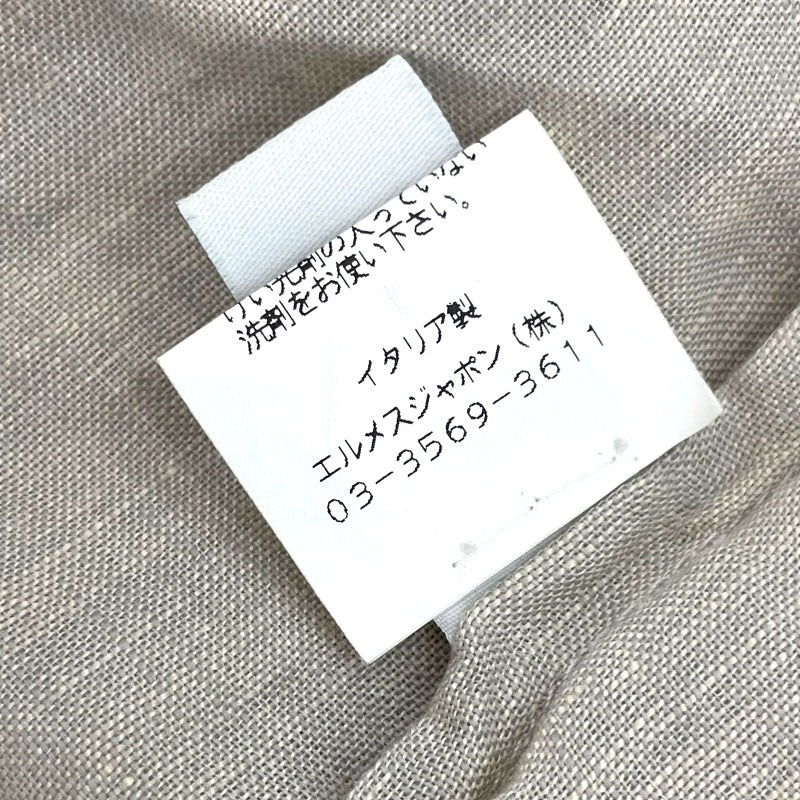 剤の入っていない
洗剤をお使い下さい。
イタリア製
エルメスジャポン（株）
03-3569-3611